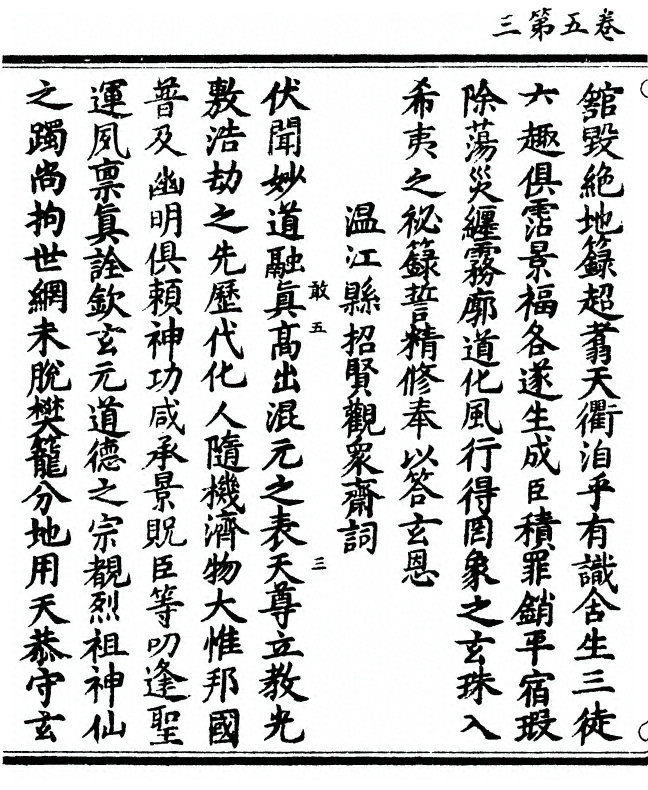 三第五卷
舘毀絶地籙超翥天衢洎乎有識含生三徒
六趣俱霑景福各遂生成臣積罪銷平宿瑕
除蕩災纏霧廓道化風行得罔象之玄珠入
希夷之祕籙誓精修奉以答玄恩
溫江縣招賢觀衆齋詞
敢五
三
伏聞妙道融眞高出混元之表天尊立教光
敷浩劫之先歷代化人隨機濟物大惟邦國
普及幽明俱賴神功咸承景貺臣等叨逢聖
運夙禀眞詮欽玄元道德之宗覩烈祖神仙
之躅尚拘世網未脫樊籠分地用天恭守玄